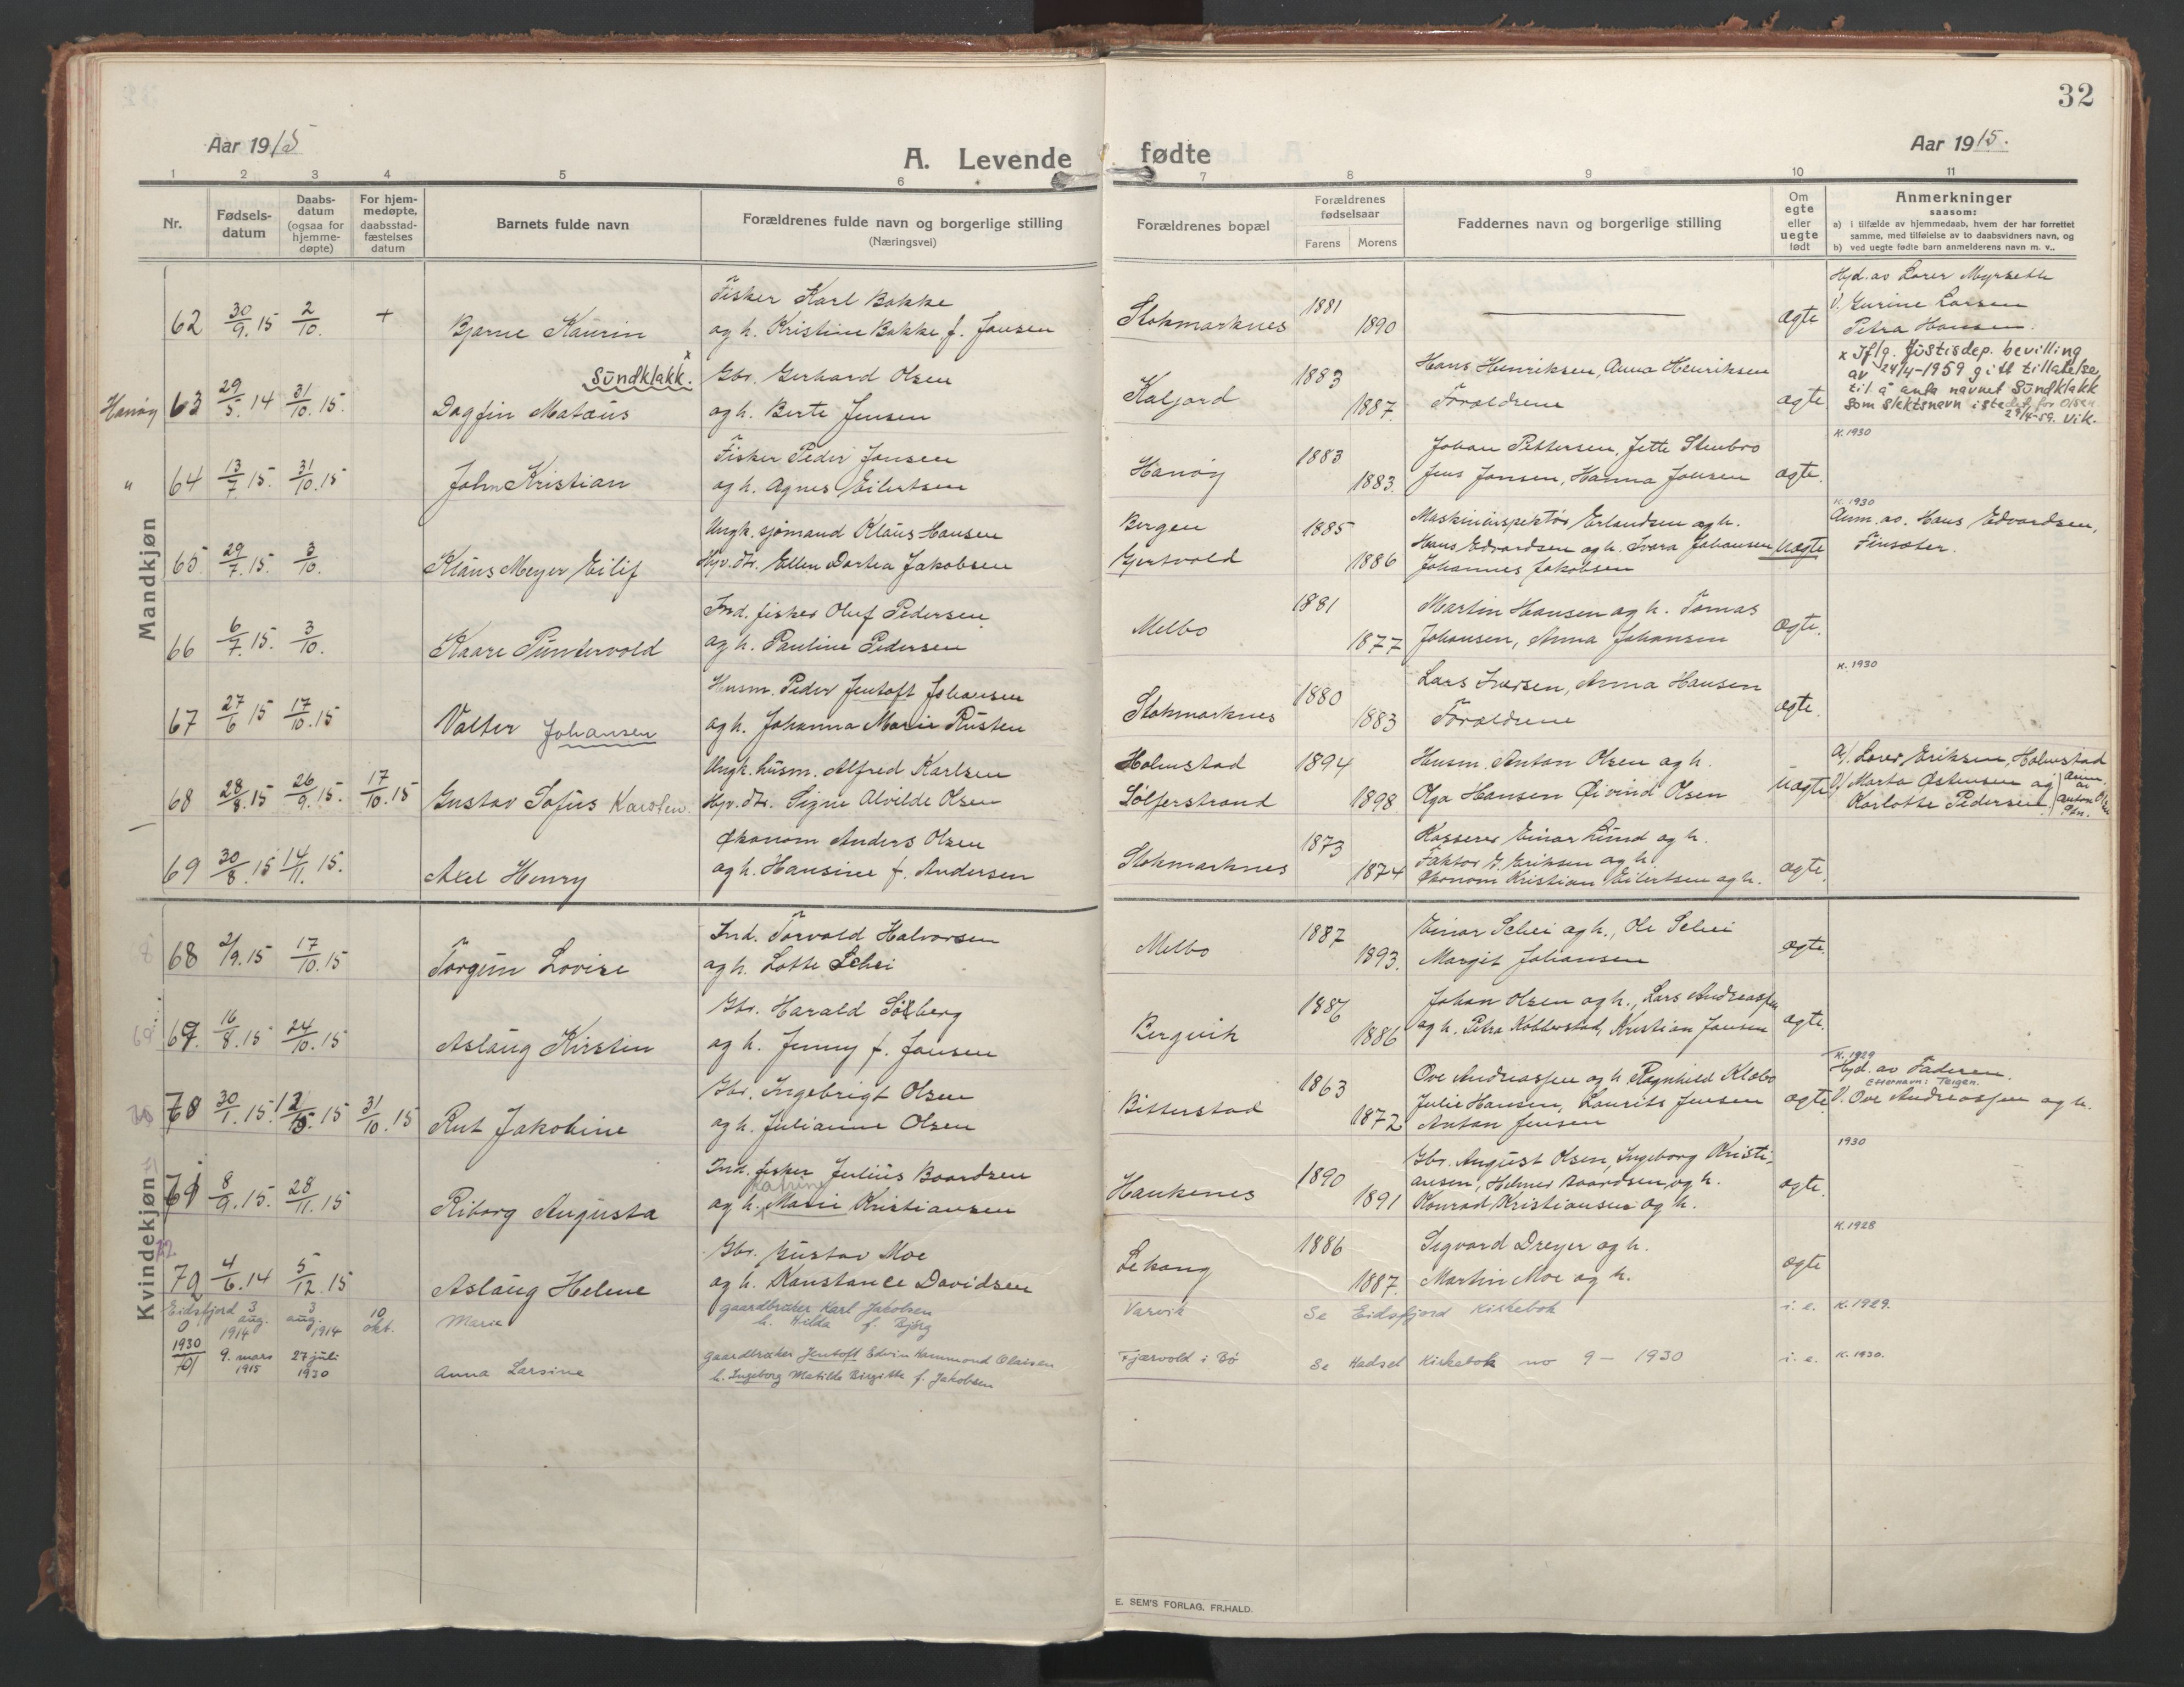 32
Aar 1915
A. Levende fødte
Aar 1915.
1 2 3 4 5 6 7 8 9 10 11
Nr.
Fødsels-
datum
Daabs-
datum
(ogsaa for
hjemme-
døpte)
For hjem-
medøpte,
daabsstad-
fæstelses
datum
Barnets fulde navn
Forældrenes fulde navn og borgerlige stilling
(Næringsvei)
Forældrenes bopæl
Forældrenes
fødselsaar
Farens Morens
Faddernes navn og borgerlige stilling
Om
egte
eller
uegte
født
Anmerkninger
saasom:
a) i tilfælde av hjemmedaab, hvem der har forrettet
samme, med tilføielse av to daabsvidners navn, og
b) ved uegte fødte barn anmelderens navn m. v..
Mandkjøn
62 30/9.15 2/10. + Bjarne Kaurin
Fisker Karl Bakke
og h. Kristine Bakke, f. Jensen
Stokmarknes 1881 1890 ægte
Hjd. av Lærer Myrseth
V. Gurine Larsen
Petra Hansen.
Hanøy 63 29/5.14 31/10.15. Dagfin Matæus Sundklakk. x
Gbr. Gerhard Olsen
og h. Berte Jensen
Kaljord 1883 1887.
Hans Henriksen, Anna Henriksen
Forældrene
ægte
x Iflg. Justisdep. bevilling
av 24/4-1959 gitt tillatelse
til å anta navnet Sundklakk
som slektsnavn istedet for Olsen
29/4-59. Vik.
" 64 13/7 15. 31/10.15 John Kristian
Fisker Peder Jensen
og h. Agnes Eilertsen
Hanøy 1883 1883.
Johan Pettersen, Jette Stenbro
Jens Jensen, Hanna Jensen
ægte.
K. 1930
65 29/7.15. 3/10. Klaus Meyer Eilif
Ungk. sjømand Klaus Hansen
Hjv. dtr. Ellen Dortea Jakobsen
Bergen
Gjertvold
1885 1886
Maskininspektør Erlandsen og h.
Hans Edvardsen og h. Svara Johansen
Johannes Jakobsen
uægte
K. 1930
Anm. av. Hans Edvardsen,
Finsæter.
66 6/7.15. 3/10. Kaare Puntervold
Ind. fisker Oluf Pedersen
og h. Pauline Pedersen
Melbo 1881 1877
Martin Hansen og h. Tomas
Johansen, Anna Johansen
ægte.
67 27/6 15 17/10.15 Valter Johansen
Husm. Peder Jentoft Johansen
og h. Johanna Marie Rusten
Stokmarknes 1880 1883
Lars Iversen, Anna Hansen
Forældrene
ægte.
K. 1930
68 28/8.15 26/9.15. 17/10.15 Gustav Sofus Karsten.
Ungk. husm. Alfred Karlsen
Hjv. dtr. Signe Alvilde Olsen
Holmstad
Sølferstrand
1894 1898
Husm. Anton Olsen og h.
Olga Hansen Øivind Olsen
uægte
a/ Lærer Eriksen, Holmstad
V/ Marta Østensen og
Karlotte Pedersen.
Anm. av Anton Olsen
69 30/8.15 14/11.15. Axel Henry
Økonom Anders Olsen
og h. Hansine f. Andersen
Stokmarknes 1873 1874
Kasserer Einar Lund og h.
Faktor G. Eriksen og h.
Økonom Kristian Eilertsen og h.
ægte.
Kvindekjøn
68 2/9.15 17/10.15 Torgun Lovise
Ind. Torvald Halvorsen
og h. Lotte Schei
Melbo 1887 1893.
Einar Schei og h., Ole Schei
Margit Johansen
ægte.
69. 16/8.15 24/10.15 Aslaug Kirsten
Gbr. Harald Solberg
og h. Jenny f. Jensen
Bergvik 1886 1886
Johan Olsen og h., Lars Andreassen
og h. Petra Kobberstad, Kristian Jensen
ægte.
70 30/1.15. 15 31/10.15 Rut Jakobine
Gbr. Ingebrigt Olsen
og h. Julianne Olsen
Bitterstad 1863 1872
Ove Andreassen og h. Ragnhild Klæbo
Julie Hansen, Laurits Jensen
Anton Jensen
ægte
K. 1929
Hjd. av Faderen.
Etternavn: Teigen.
V. Ove Andreassen og h.
71 8/9.15. 28/11.15 Riborg Augusta
Ind. fisker Julius Baardsen
og h. Katrine Marie Kristiansen
Haukenes 1890 1891
Gbr. August Olsen, Ingeborg Kristi-
ansen, Helmer Baardsen, og h.
Konrad Kristiansen og h.
ægte.
1930
72 4/6.14 5/12.15 Aslaug Helene
Gbr. Gustav Moe
og h. Konstance Davidsen
Lekang 1886 1887.
Sigvard Dreyer og h.
Martin Moe og h.
ægte
K. 1928
Eidsfjord 0 3 aug. 1914 3 aug. 1914 10 okt. Marie
gaardbruker Karl Jakobsen
h. Hilda f. Bjørg
Varvik Se Eidsfjord Kirkebok i. e. K. 1929.
1930 9. mars 1915 27 juli 1930 Anna Larsine
gaardbruker Jentoft Edvin Hammond Olaisen
h. Ingeborg Matilde Birgitte f. Jakobsen
Fjærvold i Bø Se Hadsel Kirkebok no 9 - 1930 i. e. K. 1930.
E. SEM'S FORLAG, FR.HALD.